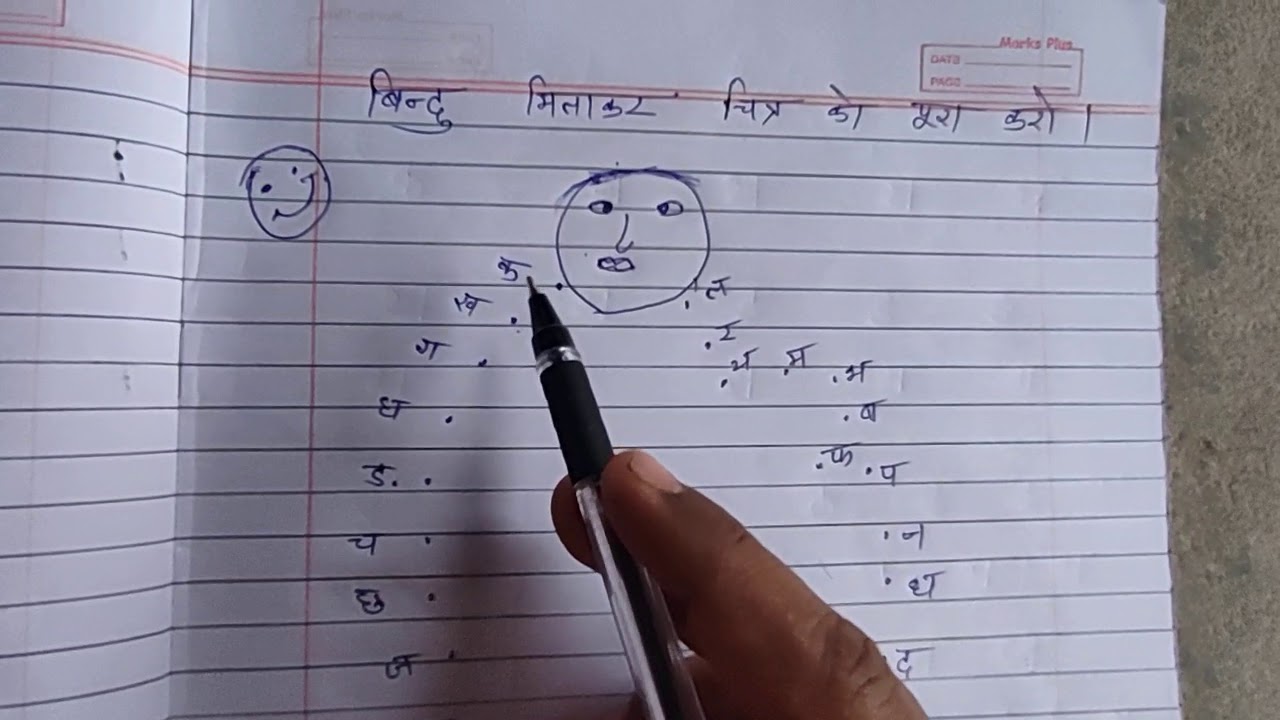 Marks Plus
DATE
PAGE
बिन्दु मिलाकर चित्र को पूरा करो।
क
ल
ख
र
ग
य म भ
घ
ब
ङ
फ प
च
न
छ
ध
ज
द